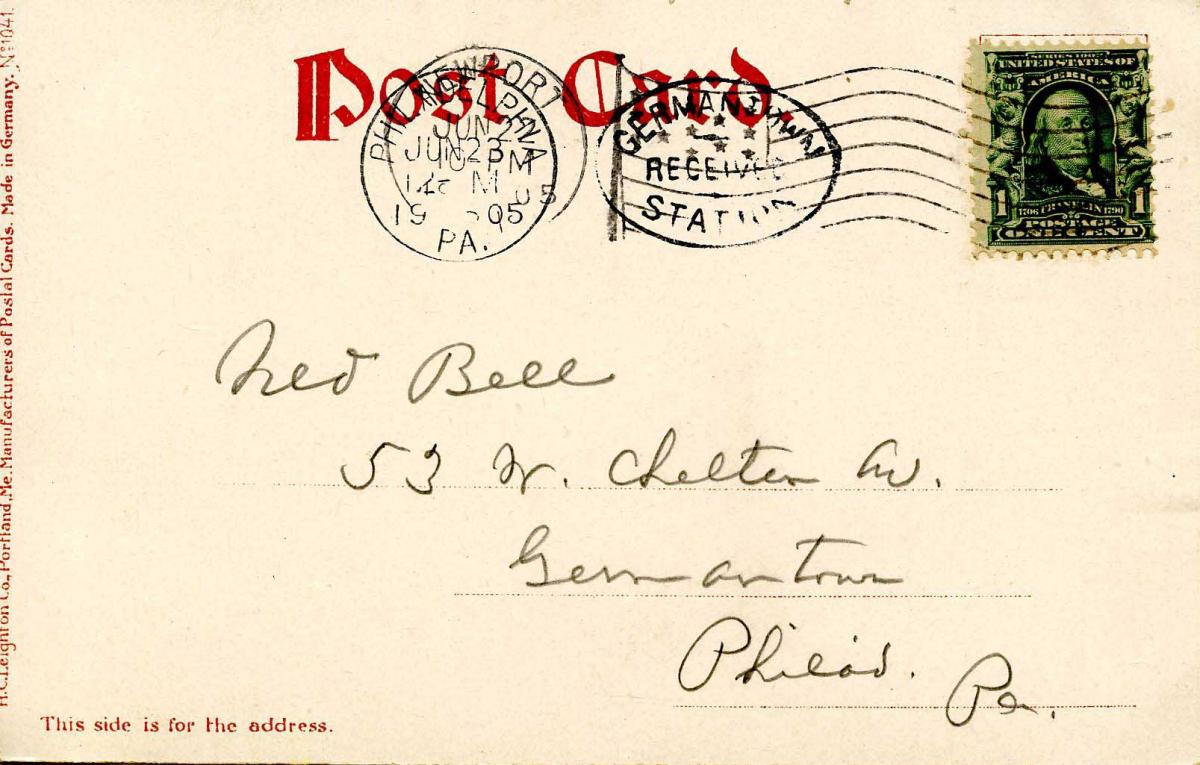 Post Card.
NEWPORT
JUN 2
PM
05
PHILADELPHIA
JUN 23
M
19 05
PA.
GERMANTOWN
RECEIVED
STATION
SERIES 1902
UNITED STATES OF
AMERICA
1 1
1706 FRANKLIN 1790
POSTAGE
ONE CENT
Ned Bell
53 W. Chelten Av.
Germantown
Philad. Pa.
This side is for the address.
H.C. Leighton Co., Portland, Me. Manufacturers of Postal Cards. Made in Germany. No 1041.